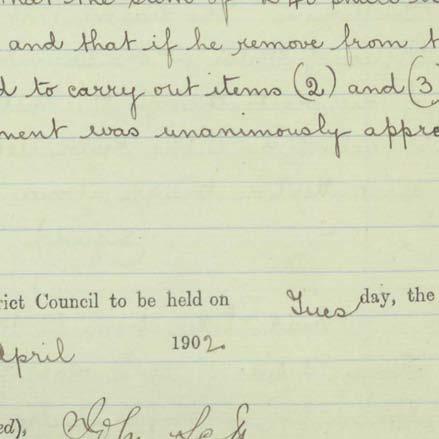 that the sum of £40
and that if he remove from t
d to carry out items (2) and (3
ment was unanimously appro
rict Council to be held on Tuesday, the
April 1902.
ed),